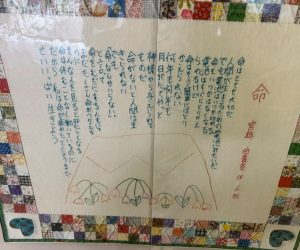 命
宮越 由貴奈 小四
命はとても大切だ
人間が生きるための電池みたいだ
でも電池はいつか切れる
命もいつかはなくなる
電池はすぐにとりかえ
られるけど
命はそう簡単には
とりかえられない
何年も何年も
月日がたってやっと
神様から与えられる
ものだ
命がないと人間は生
きられない
でも
「命なんかいらない。」
と言って
命をむだにする人もいる
そんな人を見ると悲しくなる
命は休むことなく働いているのに
せいいっぱい生きよう